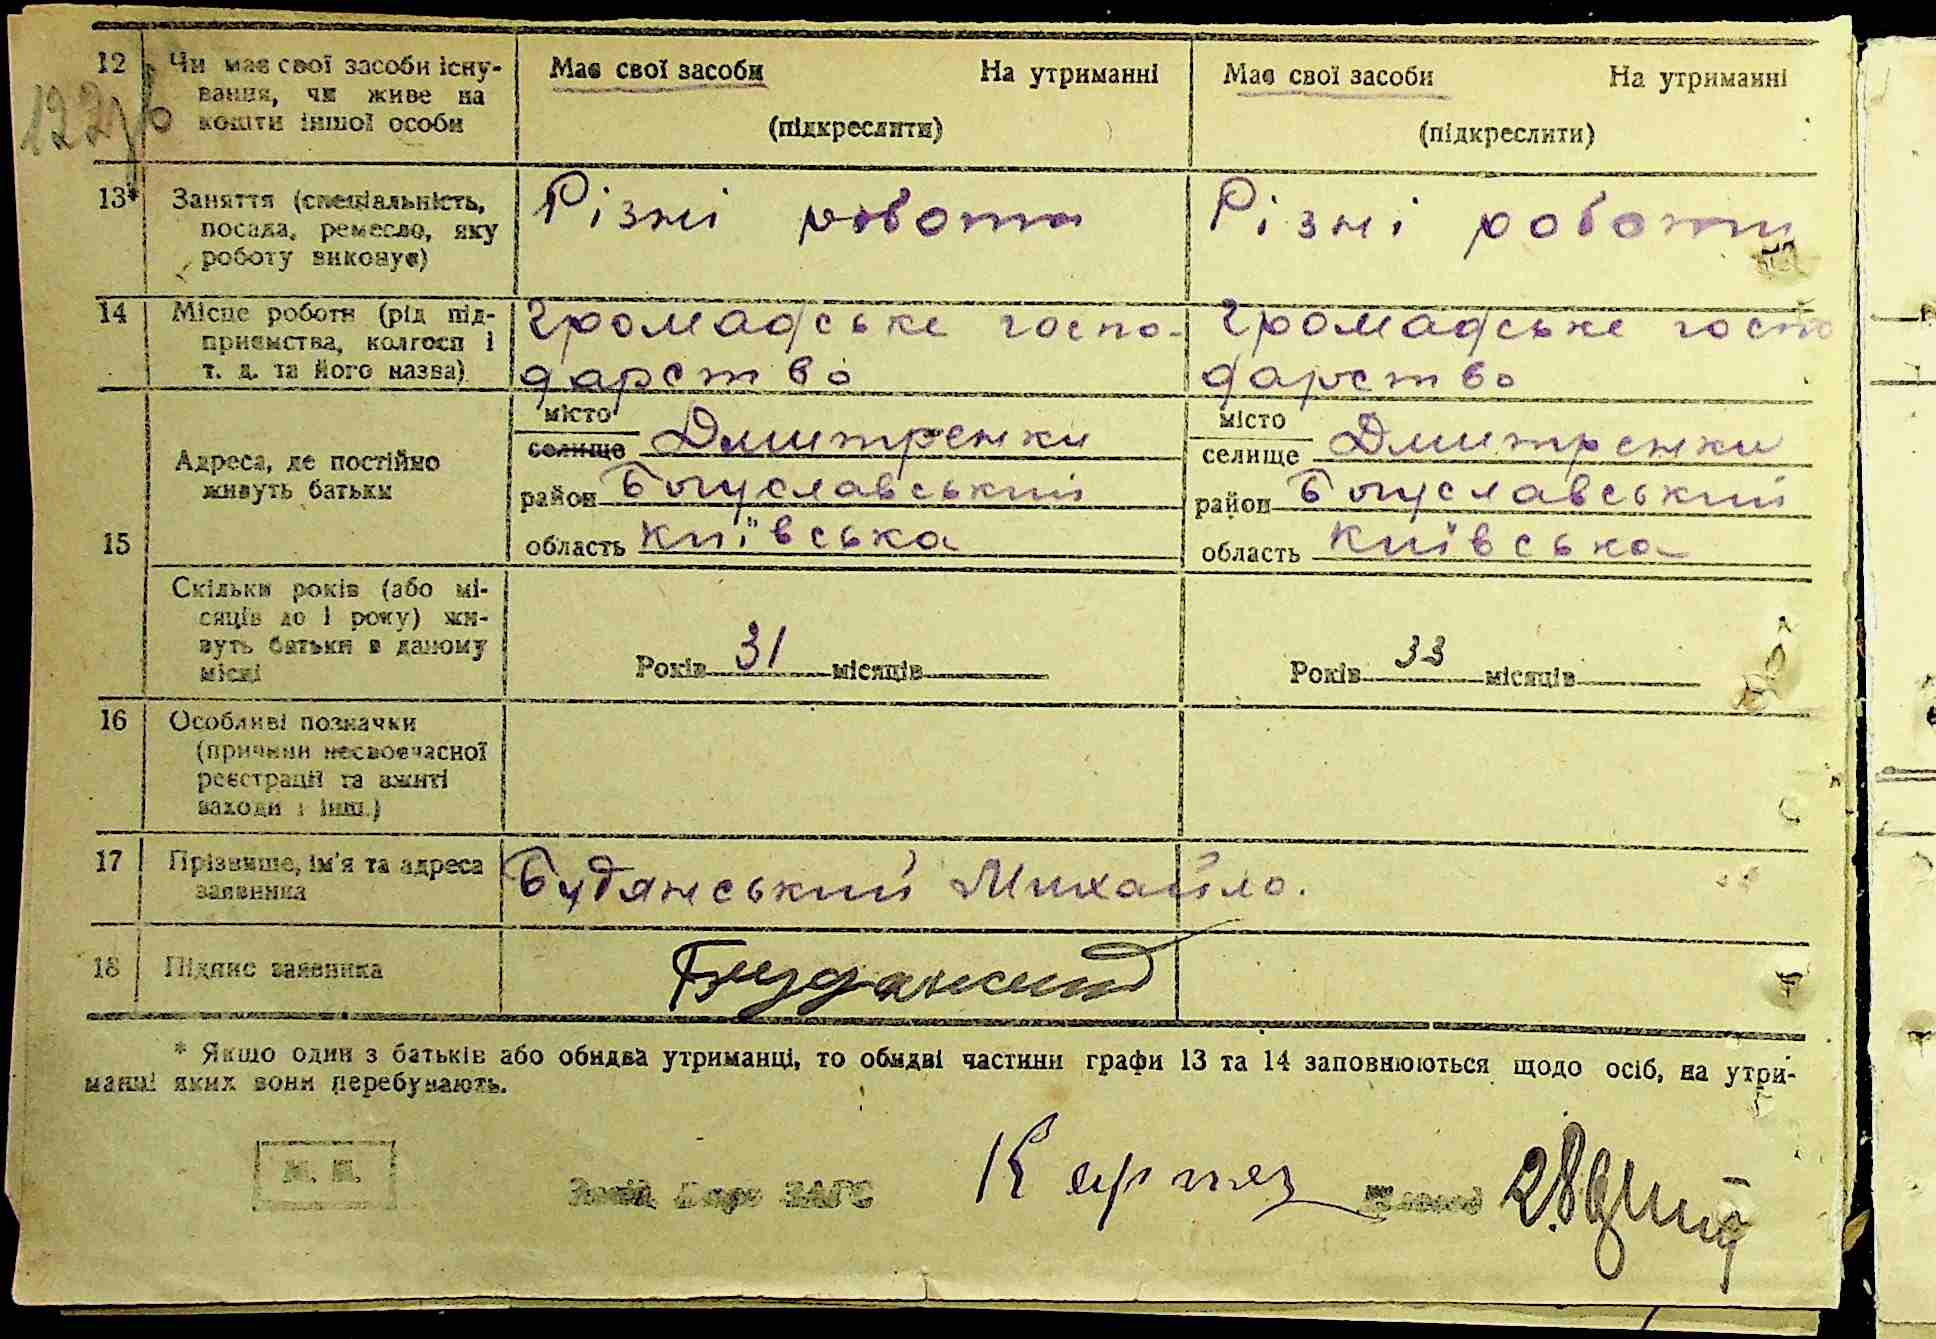 122зв
12 Чи має свої засоби існу- Має свої засоби На утриманні Має свої засоби На утриманні
вання, чи живе на
кошти іншої особи (підкреслити) (підкреслити)
13* Заняття (спеціальність, Різні роботи Різні роботи
посада, ремесло, яку
роботу виконує)
14 Місце роботи (рід під- Громадське госпо- Громадське госпо
приємства, колгосп і
т. д. та його назва) дарство дарство
місто місто
селище Дмитренки селище Дмитренки
Адреса, де постійно
живуть батьки район Богуславський район Богуславський
15 область Київська область Київська
Скільки років (або мі-
сяців до 1 року) жи-
вуть батьки в даному
місці Років 31 місяців Років 33 місяців
16 Особливі позначки
(причини несвоєчасної
реєстрації та вжиті
заходи і інш.)
17 Прізвище, ім'я та адреса Будянський Михайло.
заявника
18 Підпис заявника
* Якщо один з батьків або обидва утриманці, то обидві частини графи 13 та 14 заповнюються щодо осіб, на утри-
манні яких вони перебувають.
М. П.
Бюро ЗАГС